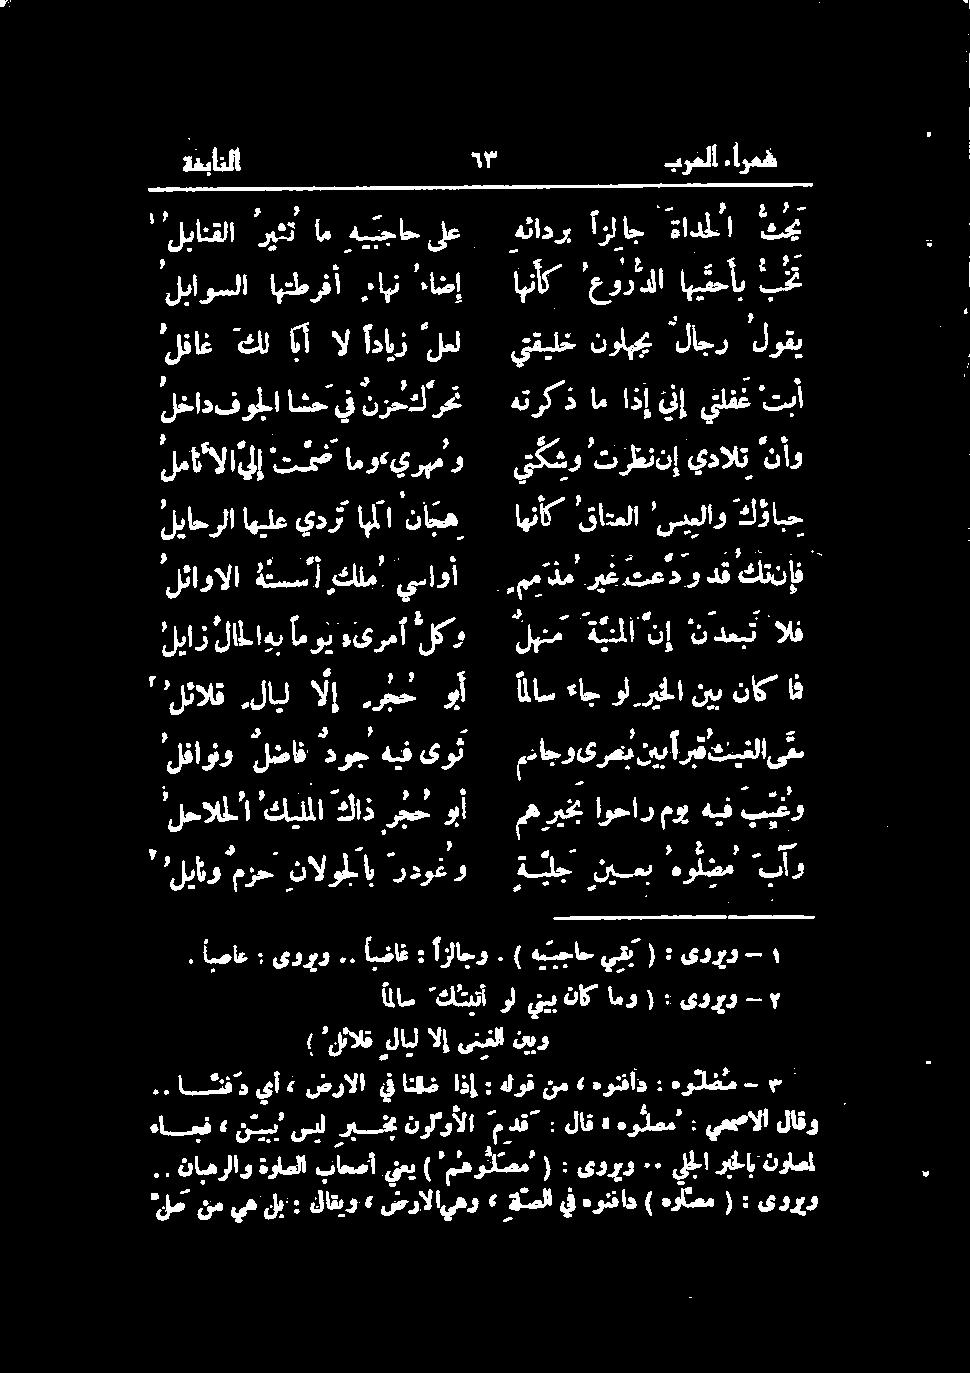 شعراء العرب ٦٣ النابغة
يَحُثُّ الحُداةَ جالِزاً بردائهِ على حاجبَيهِ ما تُثيرُ القنابلُ ١
تَخُبُّ بأَحقيها الدُّروعُ كأَنها إضاءُ نهاء أفرطتها السوابلُ
يقولُ رجالٌ يجهلون خليقتي لعلَّ زياداً لا أَبا لكَ غافلُ
أبتْ غَفلتي إني إذا ما ذكرته تحرَّكَ حُزنٌ في حَشا الجوف داخلُ
وأنَّ تِلادي إن نظرتُ وشِكَّتي ومُهري، وما ضَمَّتْ إليَّ الأناملُ
حِباؤكَ والعِيسُ العتاقُ كأنها هِجانُ المها تَردي عليها الرحايلُ
فإن تكُ قد ودَّعتَ غيرَ مُذَمم أواسي مُلك أسَّستهُ الاوائلُ
فلا تَبعدَنْ إنَّ المنيَّةَ مَنهلٌ وكلُّ أمرىء يوماً به الحالُ زايلُ
فما كان بين الخير لو جاء سالماً أَبو حُجُر إلَّا ليال قلائلُ ٢
سقَى الغيثُ قبراً بين بُصرى وجاسم ثَوى فيه جودٌ فاضلٌ ونوافلُ
وغُيِّبَ فيه يوم راحوا بخَيرهم أبو حُجُر ذاكَ المليكُ الحُلاحلُ
وآبَ مُضِلُّوهُ بعين جَليَّةٍ وغُودرَ بالجولانِ حَزمٌ ونايلُ ٣
١ – ويروى : ( يَقي حاجبَيه ) . وجالزاً : غاضباً .. ويروى : عاصباً .
٢ – ويروى : ( وما كان بيني لو أتيتُكَ سالماً
وبين الغِنى إلا ليالٍ قلائلُ )
٣ – مُضلّوه : دافنوه ، من قوله : إذا ضللنا في الارض ، أي دُفنّا ..
وقال الاصمعي : مُصلُّوه » قال : قَدِمَ الأَولون بخبر ليس يُبيّن ، فجاء
لمصلون بالخبر الجليّ .. ويروى : ( مُصَلُّوهُم ) يعني أصحاب الصلوة والرهبان ..
ويروى : ( مصلوه ) دافنوه في الصلّة ، وهي الارض ، ويقال : بل هي من صَلّ